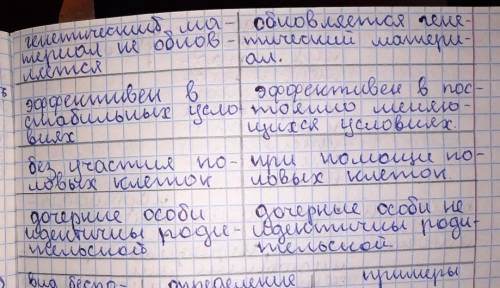 генетический ма-
териал не обнов-
ляется
обновляется гене-
тический матери-
ал.
эффективен в
стабильных усло
виях
эффективен в пос-
тоянно меняю-
щихся условиях.
без участия по-
ловых клеток
при помощи по-
ловых клеток.
дочерние особи
идентичны роди-
тельской
дочерные особи не
идентичны роди-
тельской.
вид беспо-
определение
примеры